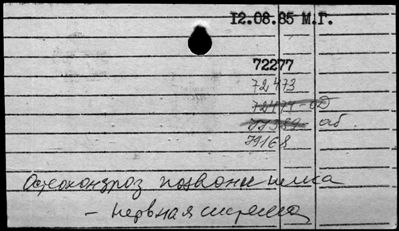 12.08.85 М.Г.
72277
72473
72474-од
77389- аб.
79168
Остеохондроз позвоночника
- нервная система